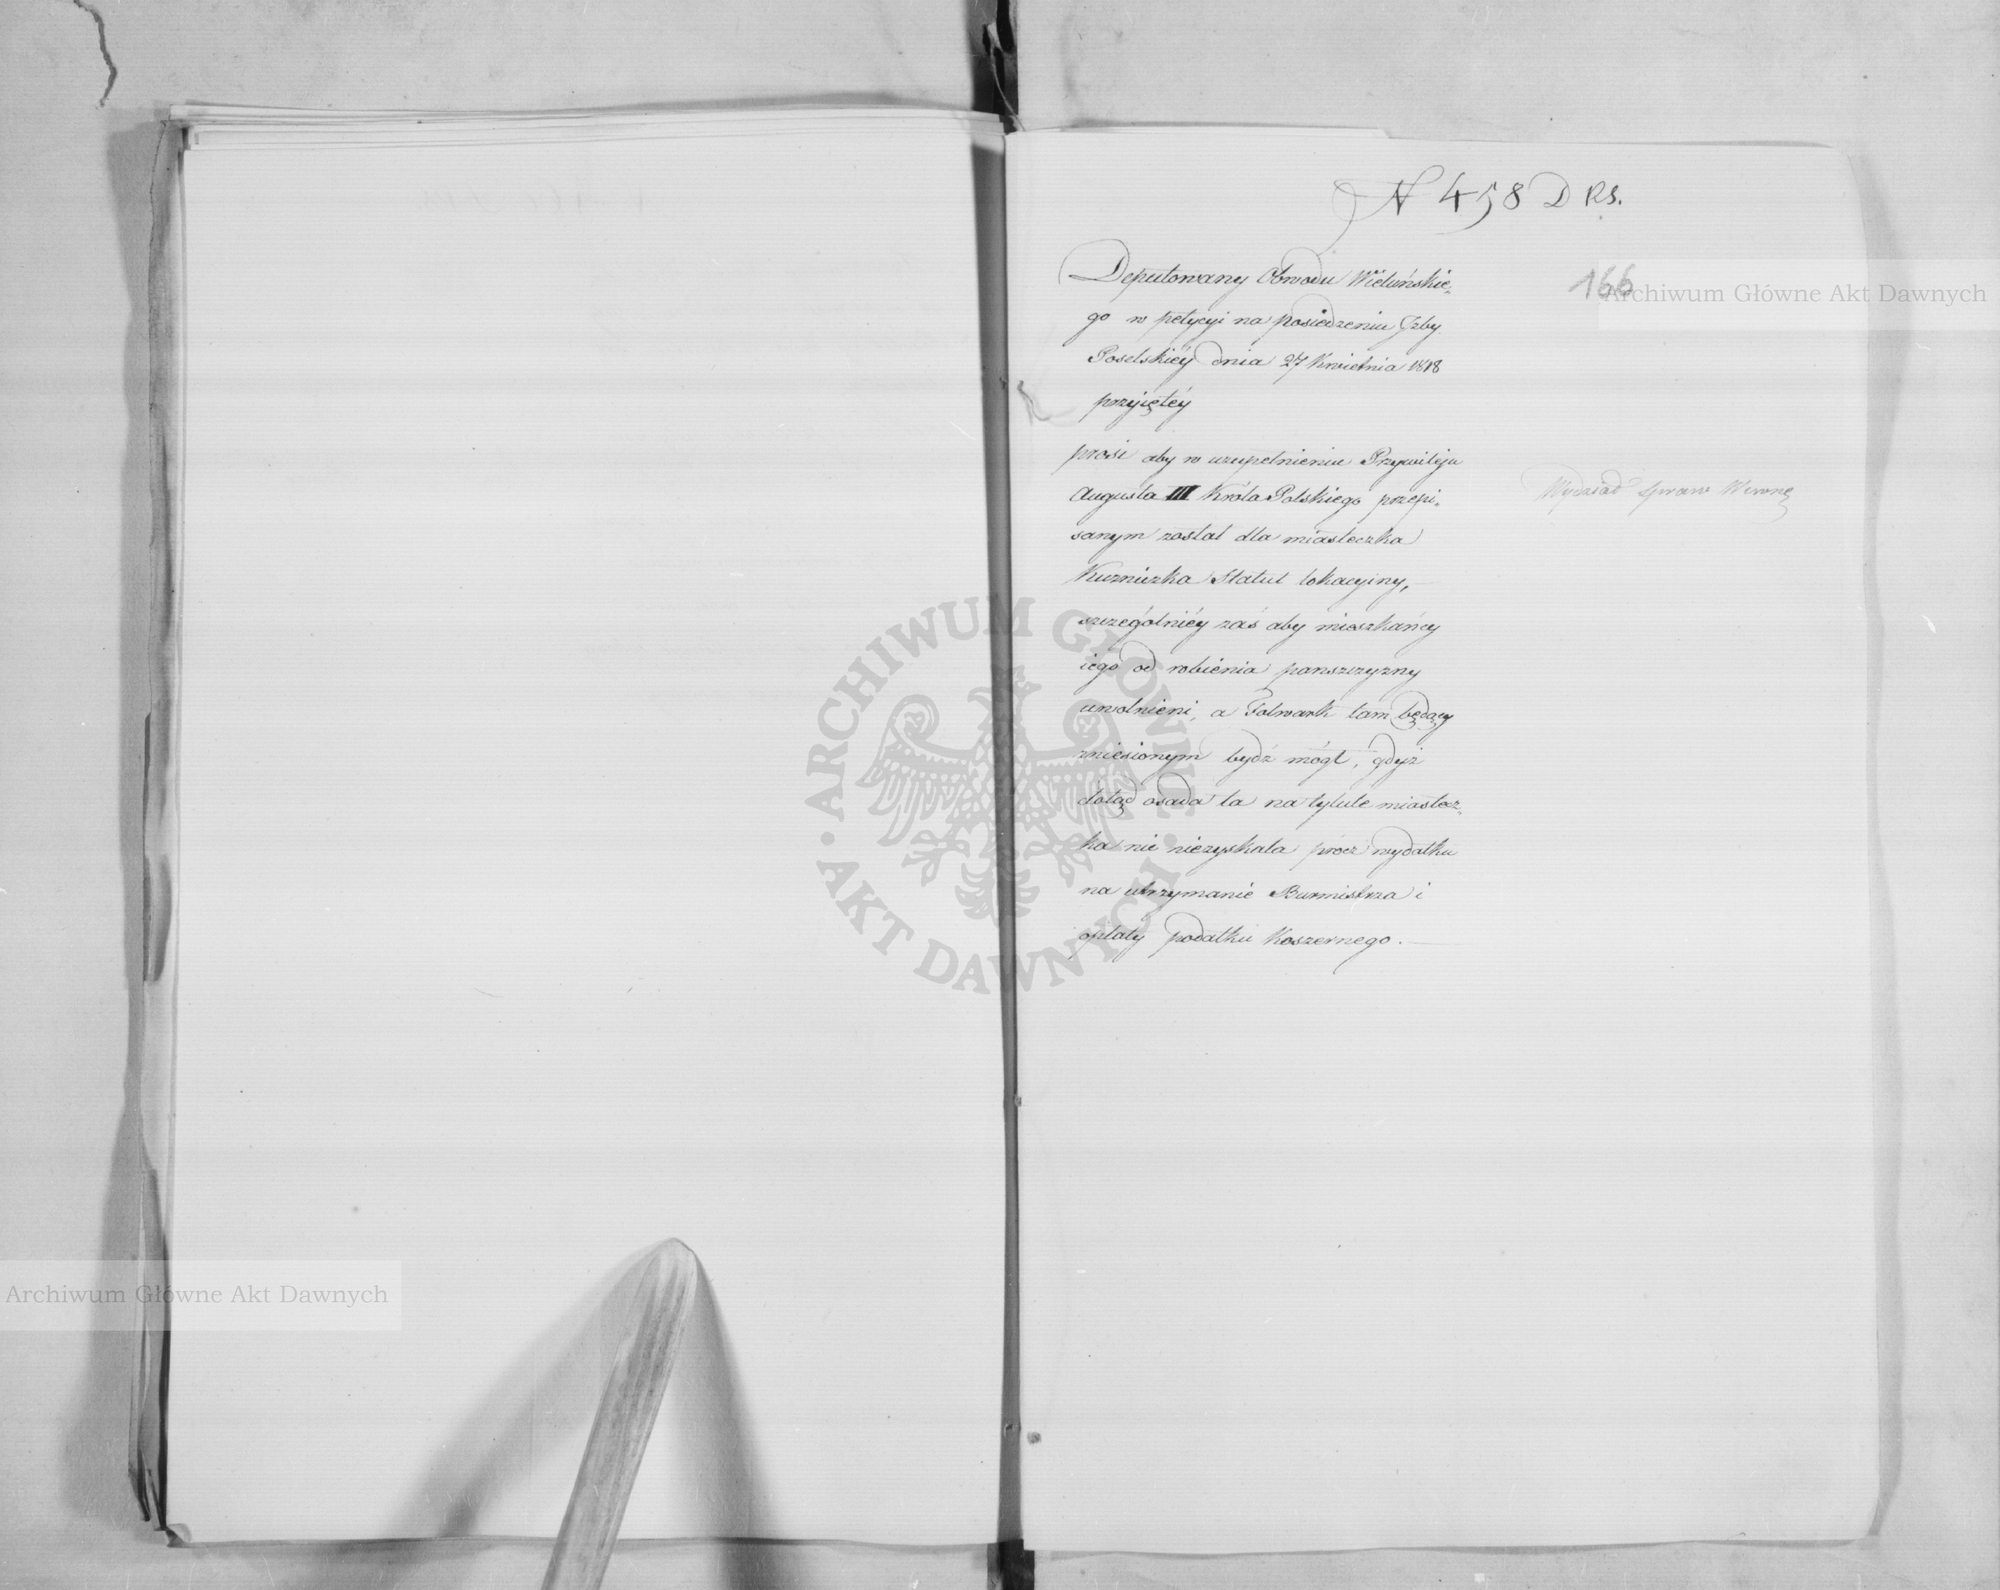 N 458 D RS.
166
Deputowany Obwodu Wieluńskie-
go w petycyi na posiedzeniu Izby
Poselskiéy dnia 27 Kwietnia 1818
przyiętéy
prosi aby w uzupełnieniu Przywileju
Augusta III Króla Polskiego przepi-
sanym został dla miasteczka
Kuzniczka Statut lokacyiny,
szczególniéy zaś aby mieszkańcy
iego od robienia panszczyzny
uwolnieni, a Folwark tam będący
zniesionym bydź mógł, gdyż
dotąd osada ta na tytule miastecz-
ka nic niezyskała prócz wydatku
na utrzymanie Burmistrza i
opłaty podatku Koszernego.
Wydział Spraw Wewnę
Archiwum Główne Akt Dawnych
ARCHIWUM GŁÓWNE AKT DAWNYCH
Archiwum Główne Akt Dawnych